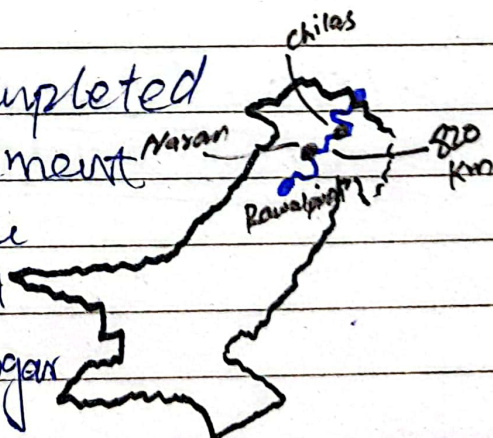 Chilas
mpleted
ment Naran
820
Km
Rawalpindi
gar